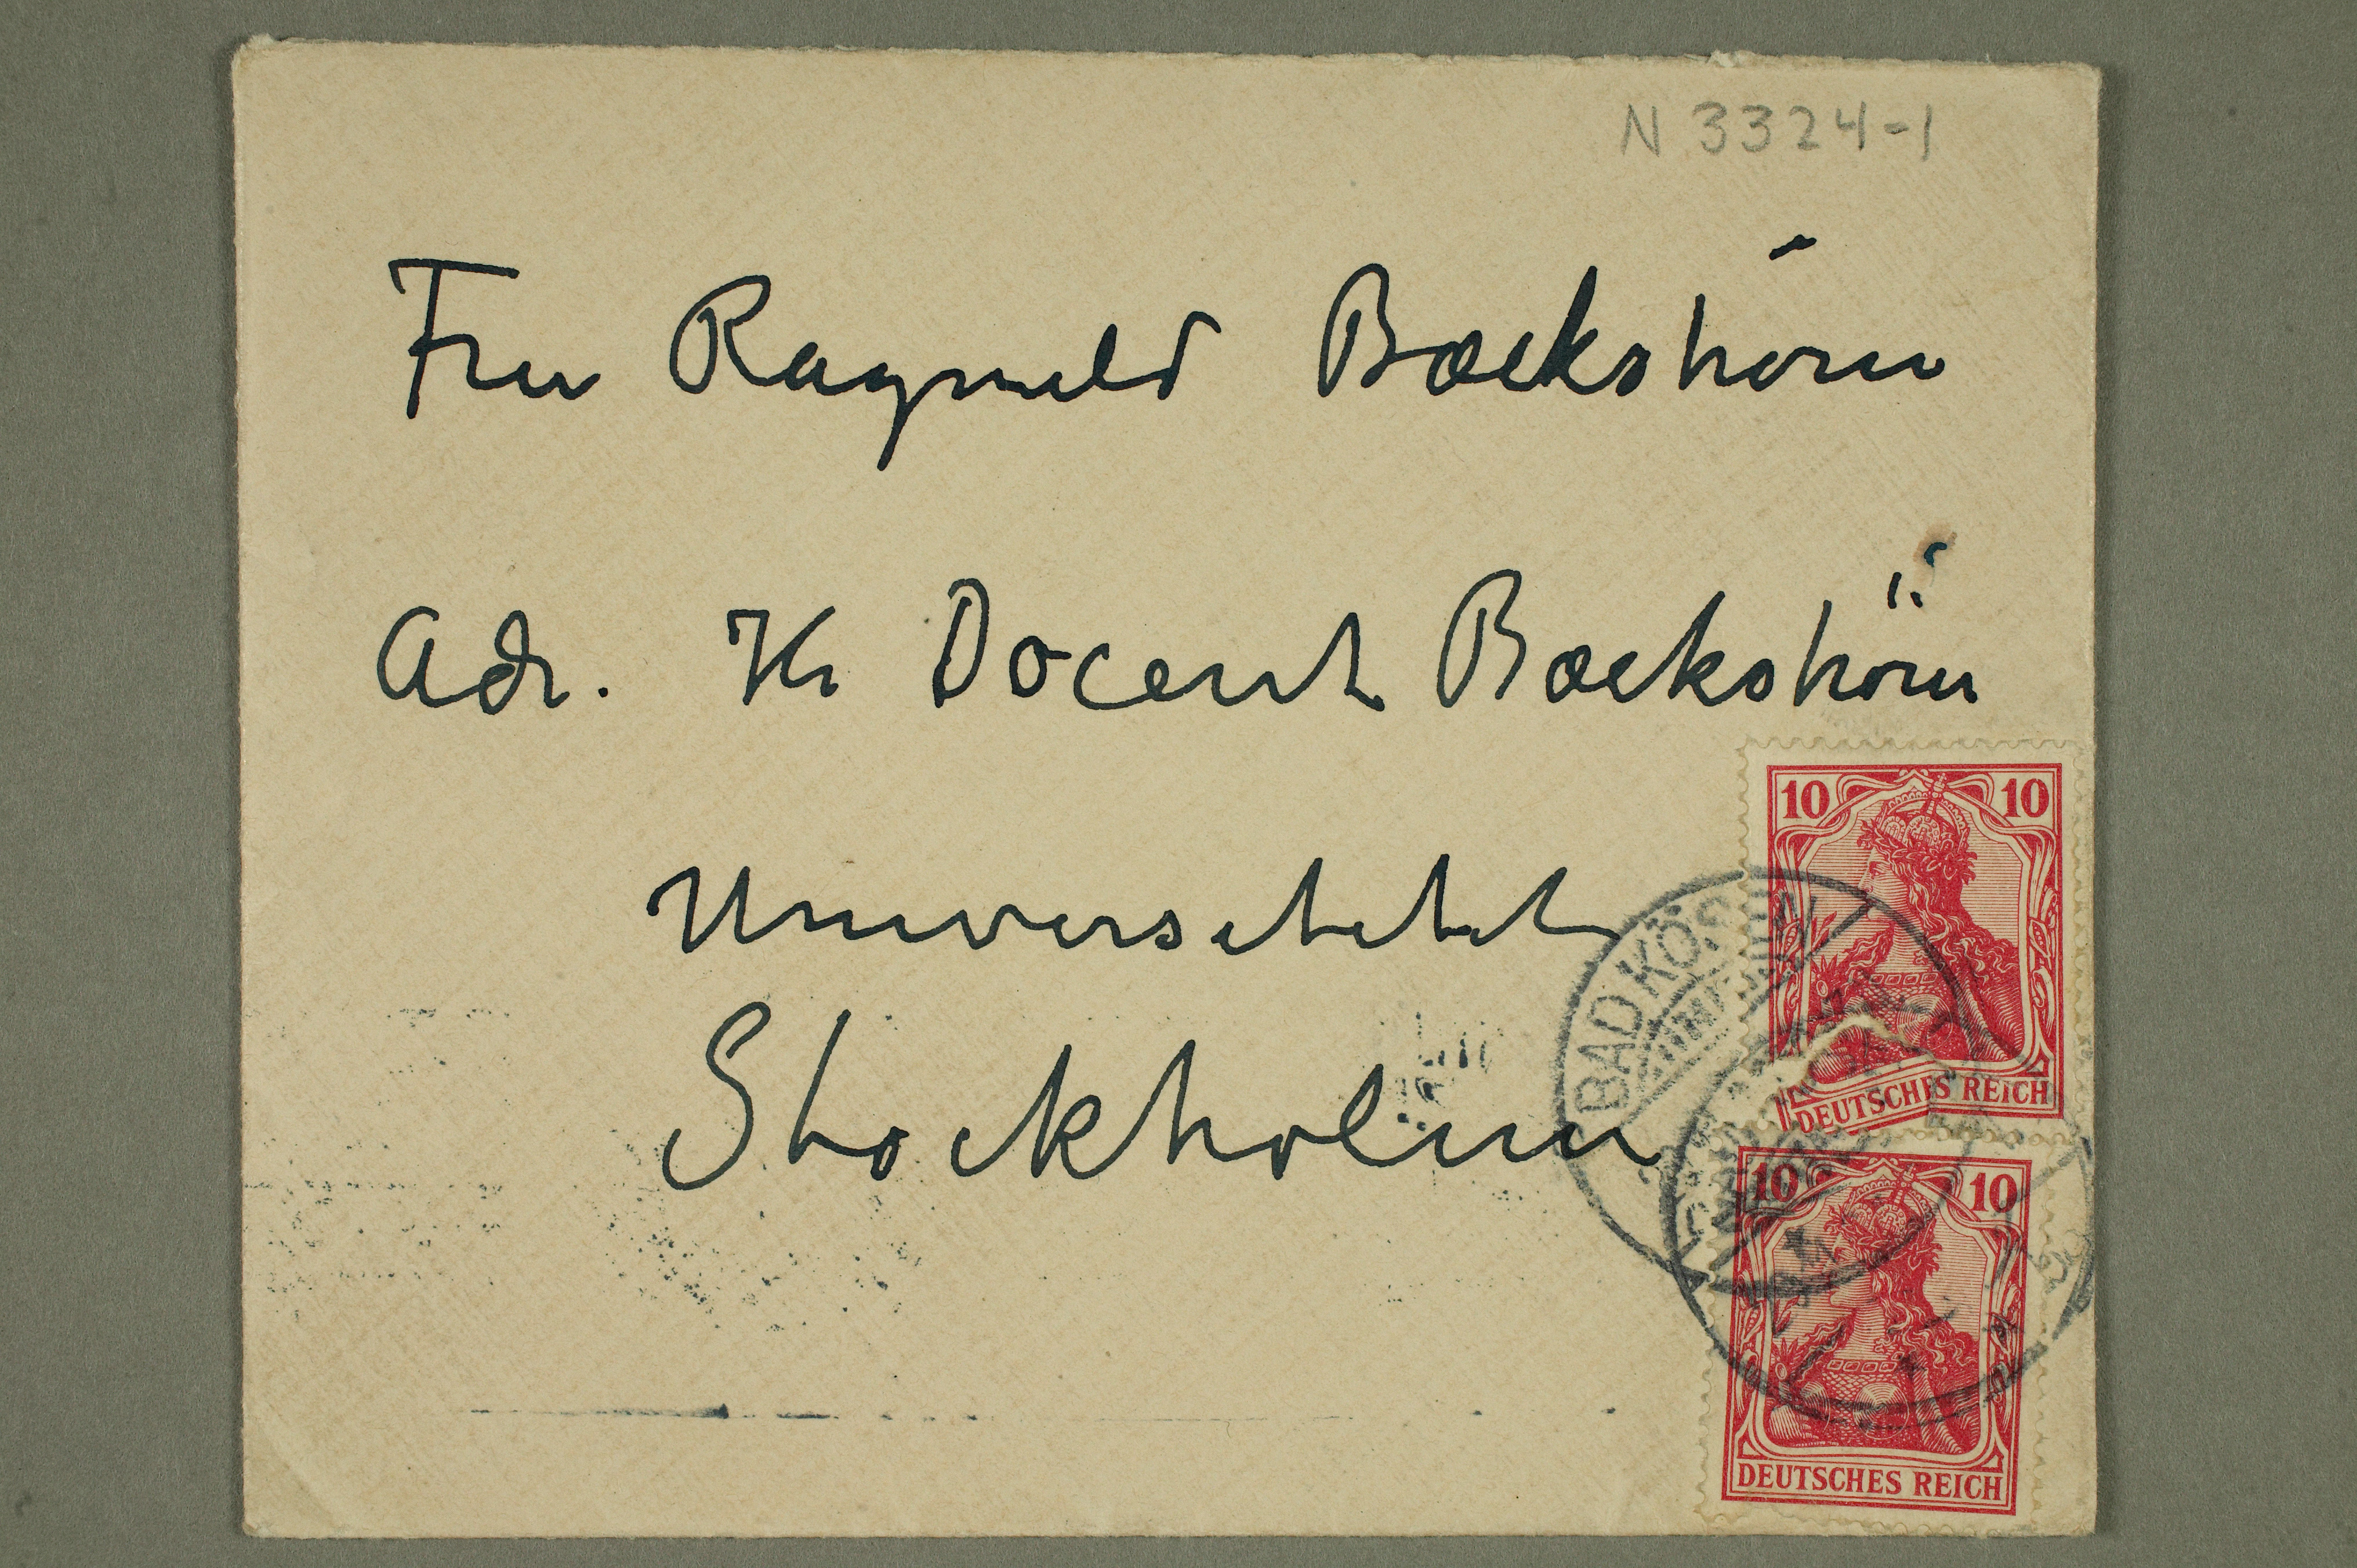 N 3324-1
Fru Ragnhild Baeckström
Adr. Hr Docent Baeckström
Universitetet
Stockholm
10 10
DEUTSCHES REICH
BAD KÖSEN
10 10
DEUTSCHES REICH